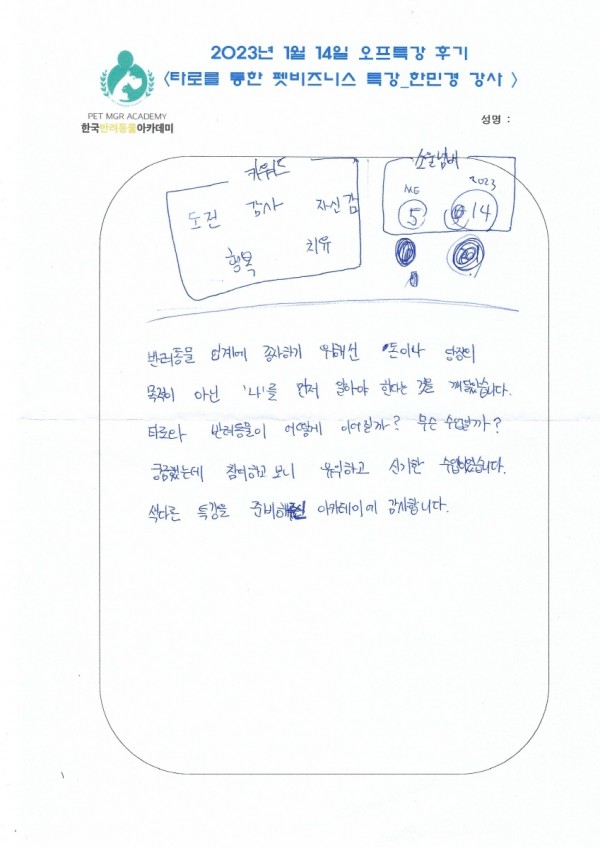 2023년 1월 14일 오프특강 후기
<타로를 통한 펫비즈니스 특강_한민경 강사 >
PET MGR ACADEMY
한국반려동물아카데미
성명 :
키워드
도전 감사 자신감
행복 치유
소울넘버
ME 2023
5 14
반려동물 업계에 종사하기 위해선 돈이나 당장의
목적이 아닌 '나'를 먼저 알아야 한다는 것을 깨달았습니다.
타로와 반려동물이 어떻게 이어질까? 무슨 수업일까?
궁금했는데 참여하고 보니 유익하고 신기한 수업이었습니다.
색다른 특강을 준비해주신 아카데미에 감사합니다.